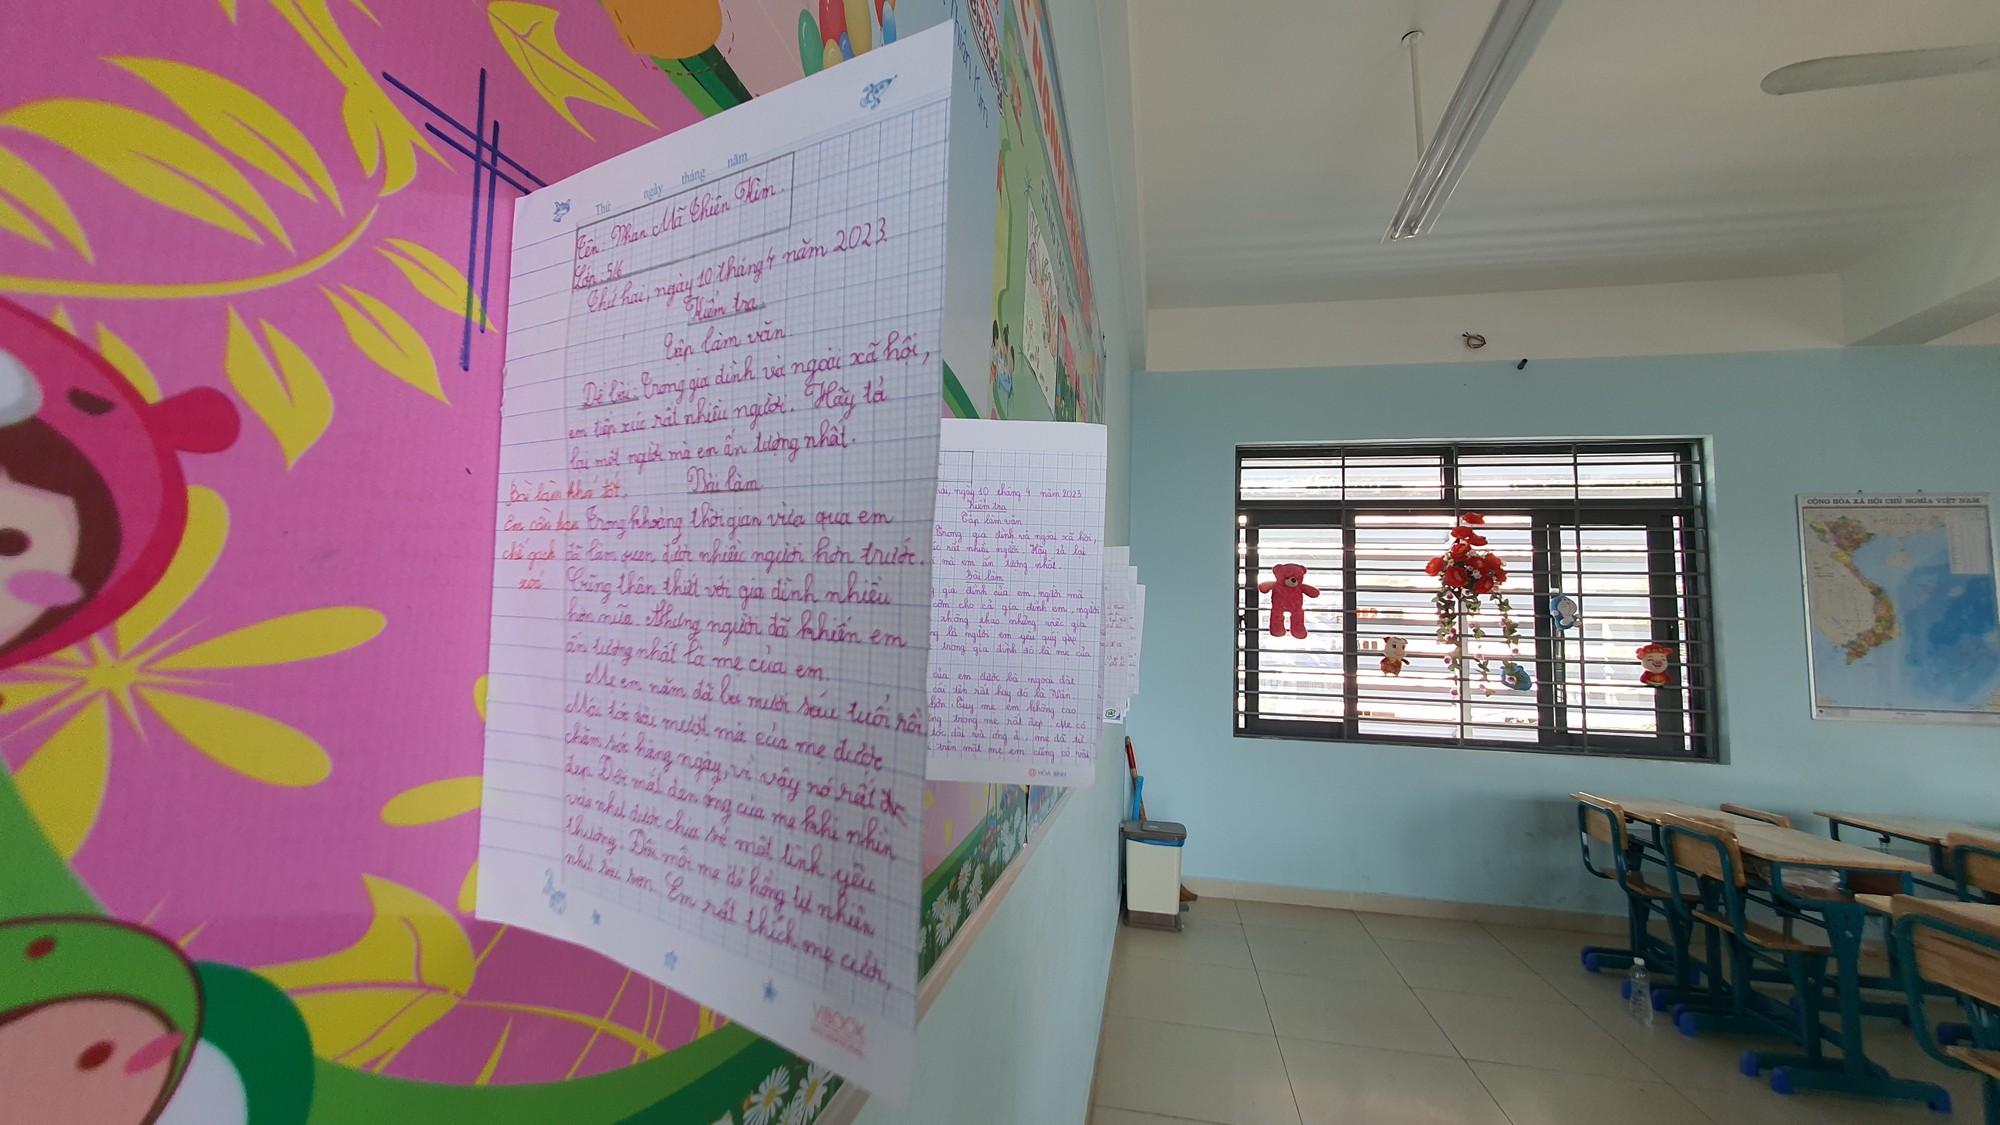 Thứ ngày tháng năm
Tên: Phan Mã Thiên Kim.
Lớp: 5/6
Thứ hai, ngày 10 tháng 4 năm 2023
Kiểm tra
Tập làm văn.
Đề bài: Trong gia đình và ngoài xã hội,
em tiếp xúc rất nhiều người. Hãy tả
lại một người mà em ấn tượng nhất.
Bài làm
Bài làm khá tốt.
Em cần hạn
chế gạch
xoá
Trong khoảng thời gian vừa qua em
đã làm quen được nhiều người hơn trước.
Cũng thân thiết với gia đình nhiều
hơn nữa. Nhưng người đã khiến em
ấn tượng nhất là mẹ của em.
Mẹ em năm đã ba mươi sáu tuổi rồi.
Mái tóc dài mượt mà của mẹ được
chăm sóc hàng ngày, vì vậy nó rất
đẹp. Đôi mắt đen óng của mẹ khi nhìn
vào như được chia sẻ một tình yêu
thương. Đôi môi mẹ đỏ hồng tự nhiên
như son. Em rất thích mẹ cười,
VIBOOK
hai, ngày 10 tháng 4 năm 2023
Kiểm tra
Tập làm văn
Trong gia đình và ngoài xã hội,
rất nhiều người. Hãy tả lại
mà em ấn tượng nhất.
Bài làm
gia đình của em, người mà
cơm cho cả gia đình em, người
không thao những việc gia
là người em yêu quý
trong gia đình đó là mẹ của
của em được bà ngoại đặt
cái tên rất hay đó là Vân.
Tuy mẹ em không cao
trong mẹ rất đẹp. Mẹ có
tóc dài và óng ả, mẹ đã từ
trên mặt mẹ em cũng có vài
HÒA BÌNH
CỘNG HÒA XÃ HỘI CHỦ NGHĨA VIỆT NAM